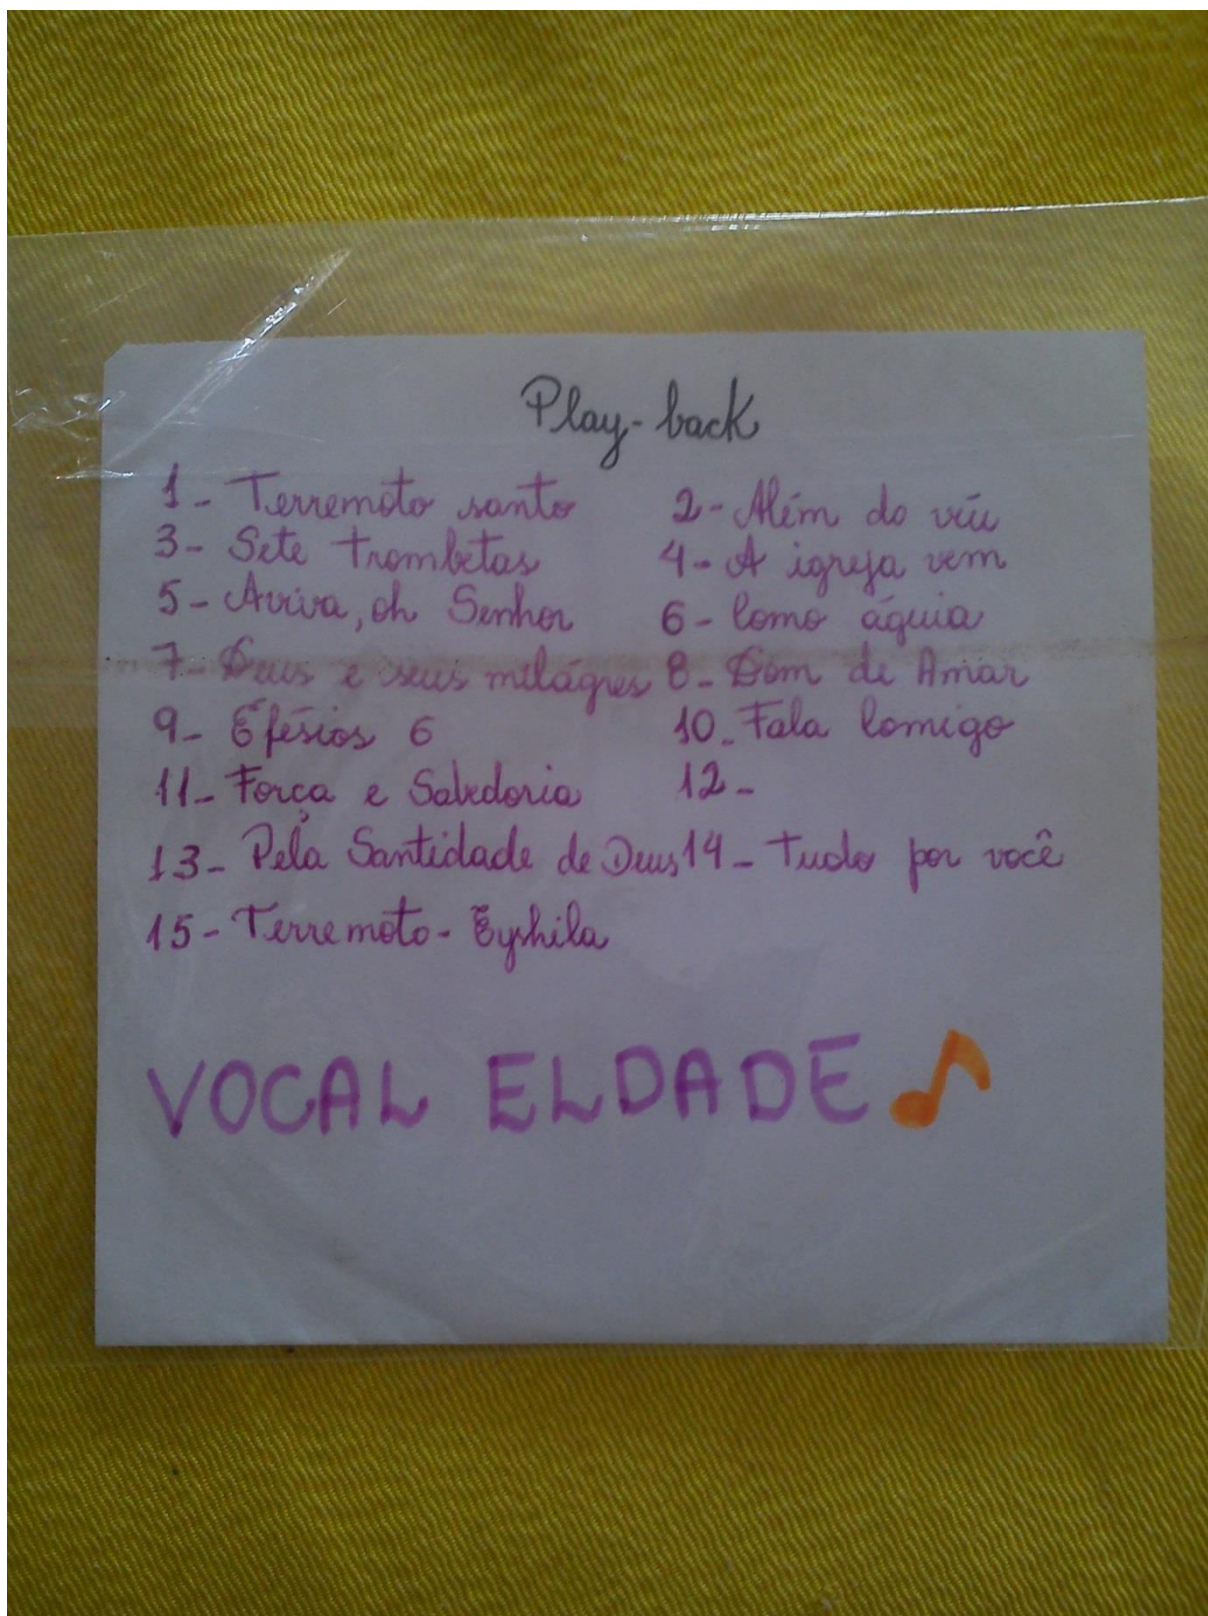 Play-back
1- Terremoto santo 2- Além do véu
3- Sete trombetas 4- A igreja vem
5- Aviva, oh Senhor 6- Como águia
7- Deus e seus milágres 8- Dom de Amar
9- Efésios 6 10- Fala Comigo
11- Força e Sabedoria 12-
13- Pela Santidade de Deus 14- Tudo por você
15- Terremoto- Eyshila
VOCAL ELDADE